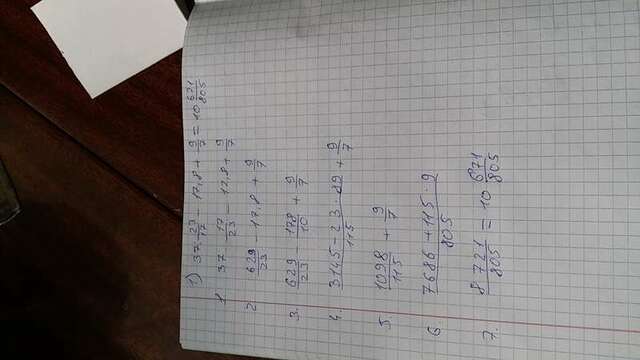 1) 37 : 23/17 - 17,8 + 9/7 = 10 671/805
1 37 · 17/23 - 17,8 + 9/7
2 629/23 - 17,8 + 9/7
3. 629/23 - 178/10 + 9/7
4. 3145-23·89/115 + 9/7
5. 1098/115 + 9/7
6 7686+115·9/805
7. 8721/805 = 10 671/805